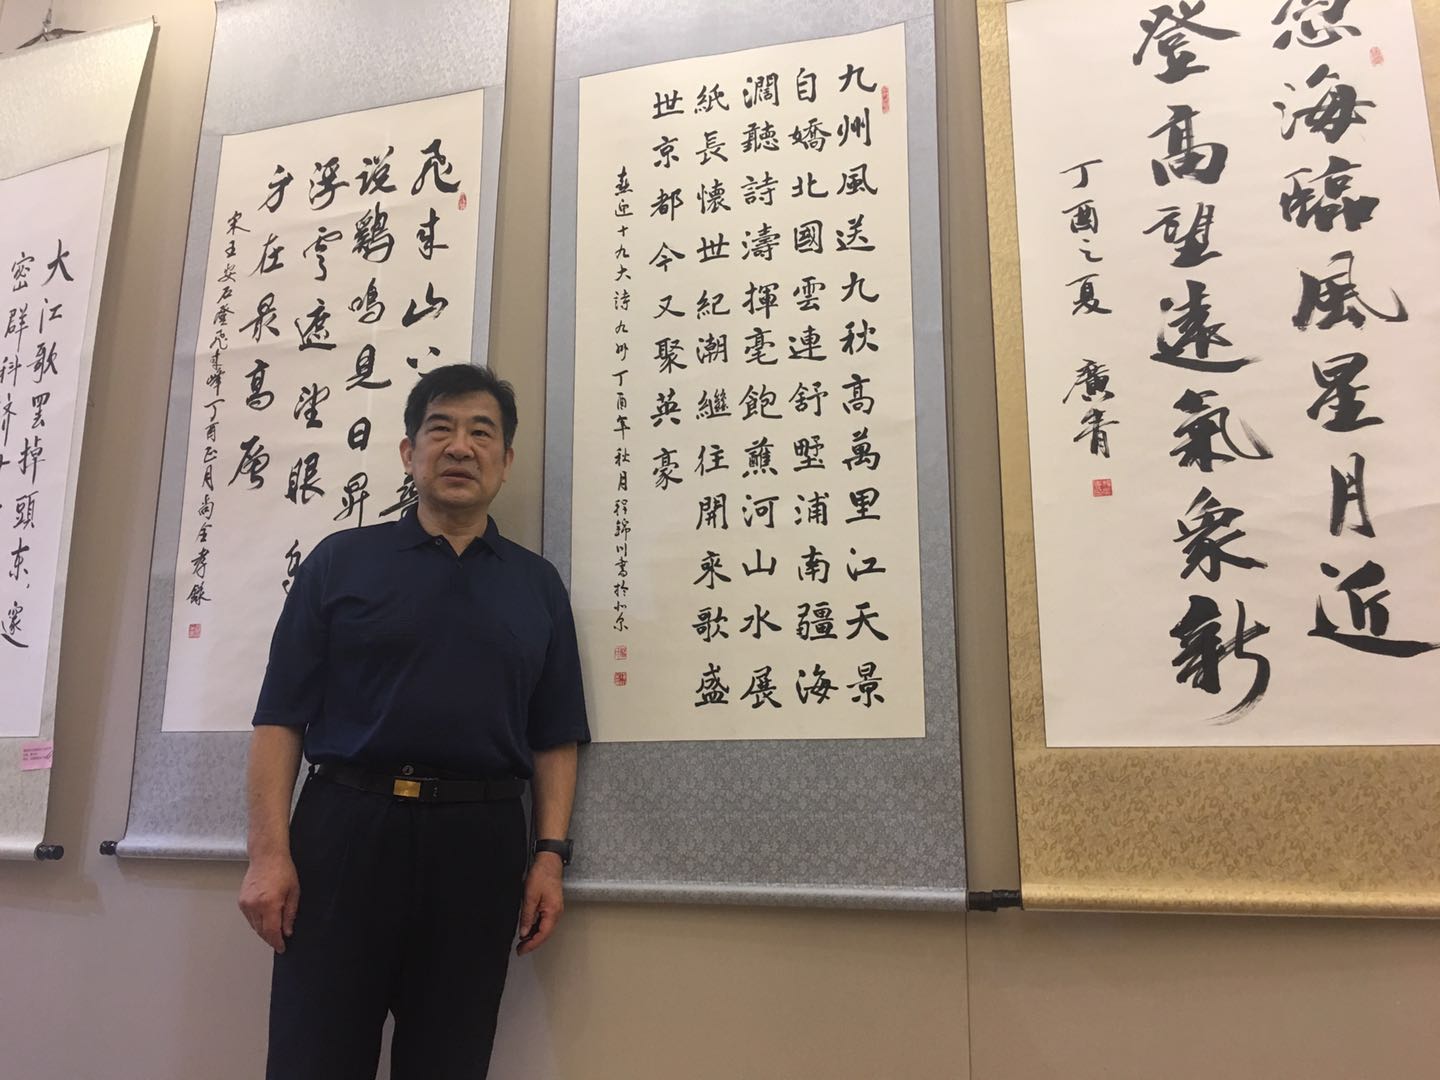 海臨風星月近
登高望遠氣象新
丁酉之夏 廣青
九州風送九秋高萬里江天景
自嬌北國雲連舒墅浦南疆海
濶聽詩濤揮毫飽蘸河山水展
紙長懷世紀潮繼往開來歌盛
世京都今又聚英豪
喜迎十九大詩九州丁酉年秋月程錦川書於北京
飛來山
说鷄鳴見日昇
浮雲遮望眼
身在最高層
宋王安石登飛來峰丁酉正月尚全孝錄
大江歌罷掉頭東，邃
密群科济